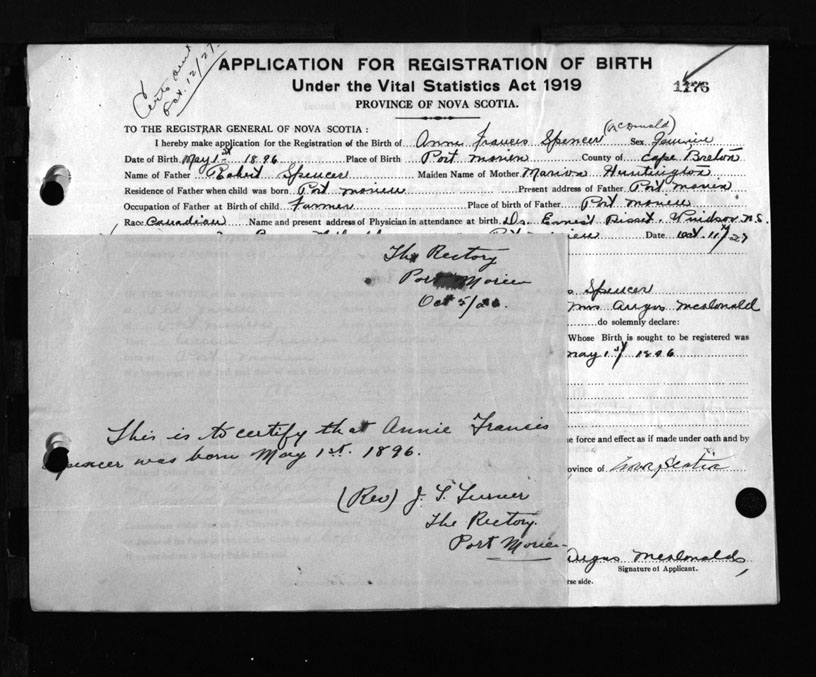 Certs sent
Oct. 12/27.
APPLICATION FOR REGISTRATION OF BIRTH
Under the Vital Statistics Act 1919
1176
PROVINCE OF NOVA SCOTIA.
TO THE REGISTRAR GENERAL OF NOVA SCOTIA:
I hereby make application for the Registration of the Birth of Annie Francis Spencer (McDonald) Sex
Date of Birth May 1st 1896 Place of Birth Port Morien County of Cape Breton
Name of Father Robert Spencer Maiden Name of Mother Marion Huntington
Residence of Father when child was born Port Morien Present address of Father Port Morien
Occupation of Father at Birth of child Farmer Place of birth of Father Port Morien
Race Canadian Name and present address of Physician in attendance at birth Dr. Ernest Windsor N.S.
Date Oct. 11th/27
The Rectory
Port Morien
Oct 5/26.
Spencer
Mrs Angus McDonald
do solemnly declare:
Whose Birth is sought to be registered was
May 1st 1896
This is to certify that Annie Francis
Spencer was born May 1st. 1896.
force and effect as if made under oath and by
ovince of Nova Scotia
(Rev) J. T. Turner
The Rectory.
Port Morien
Angus McDonald
Signature of Applicant.
rse side.